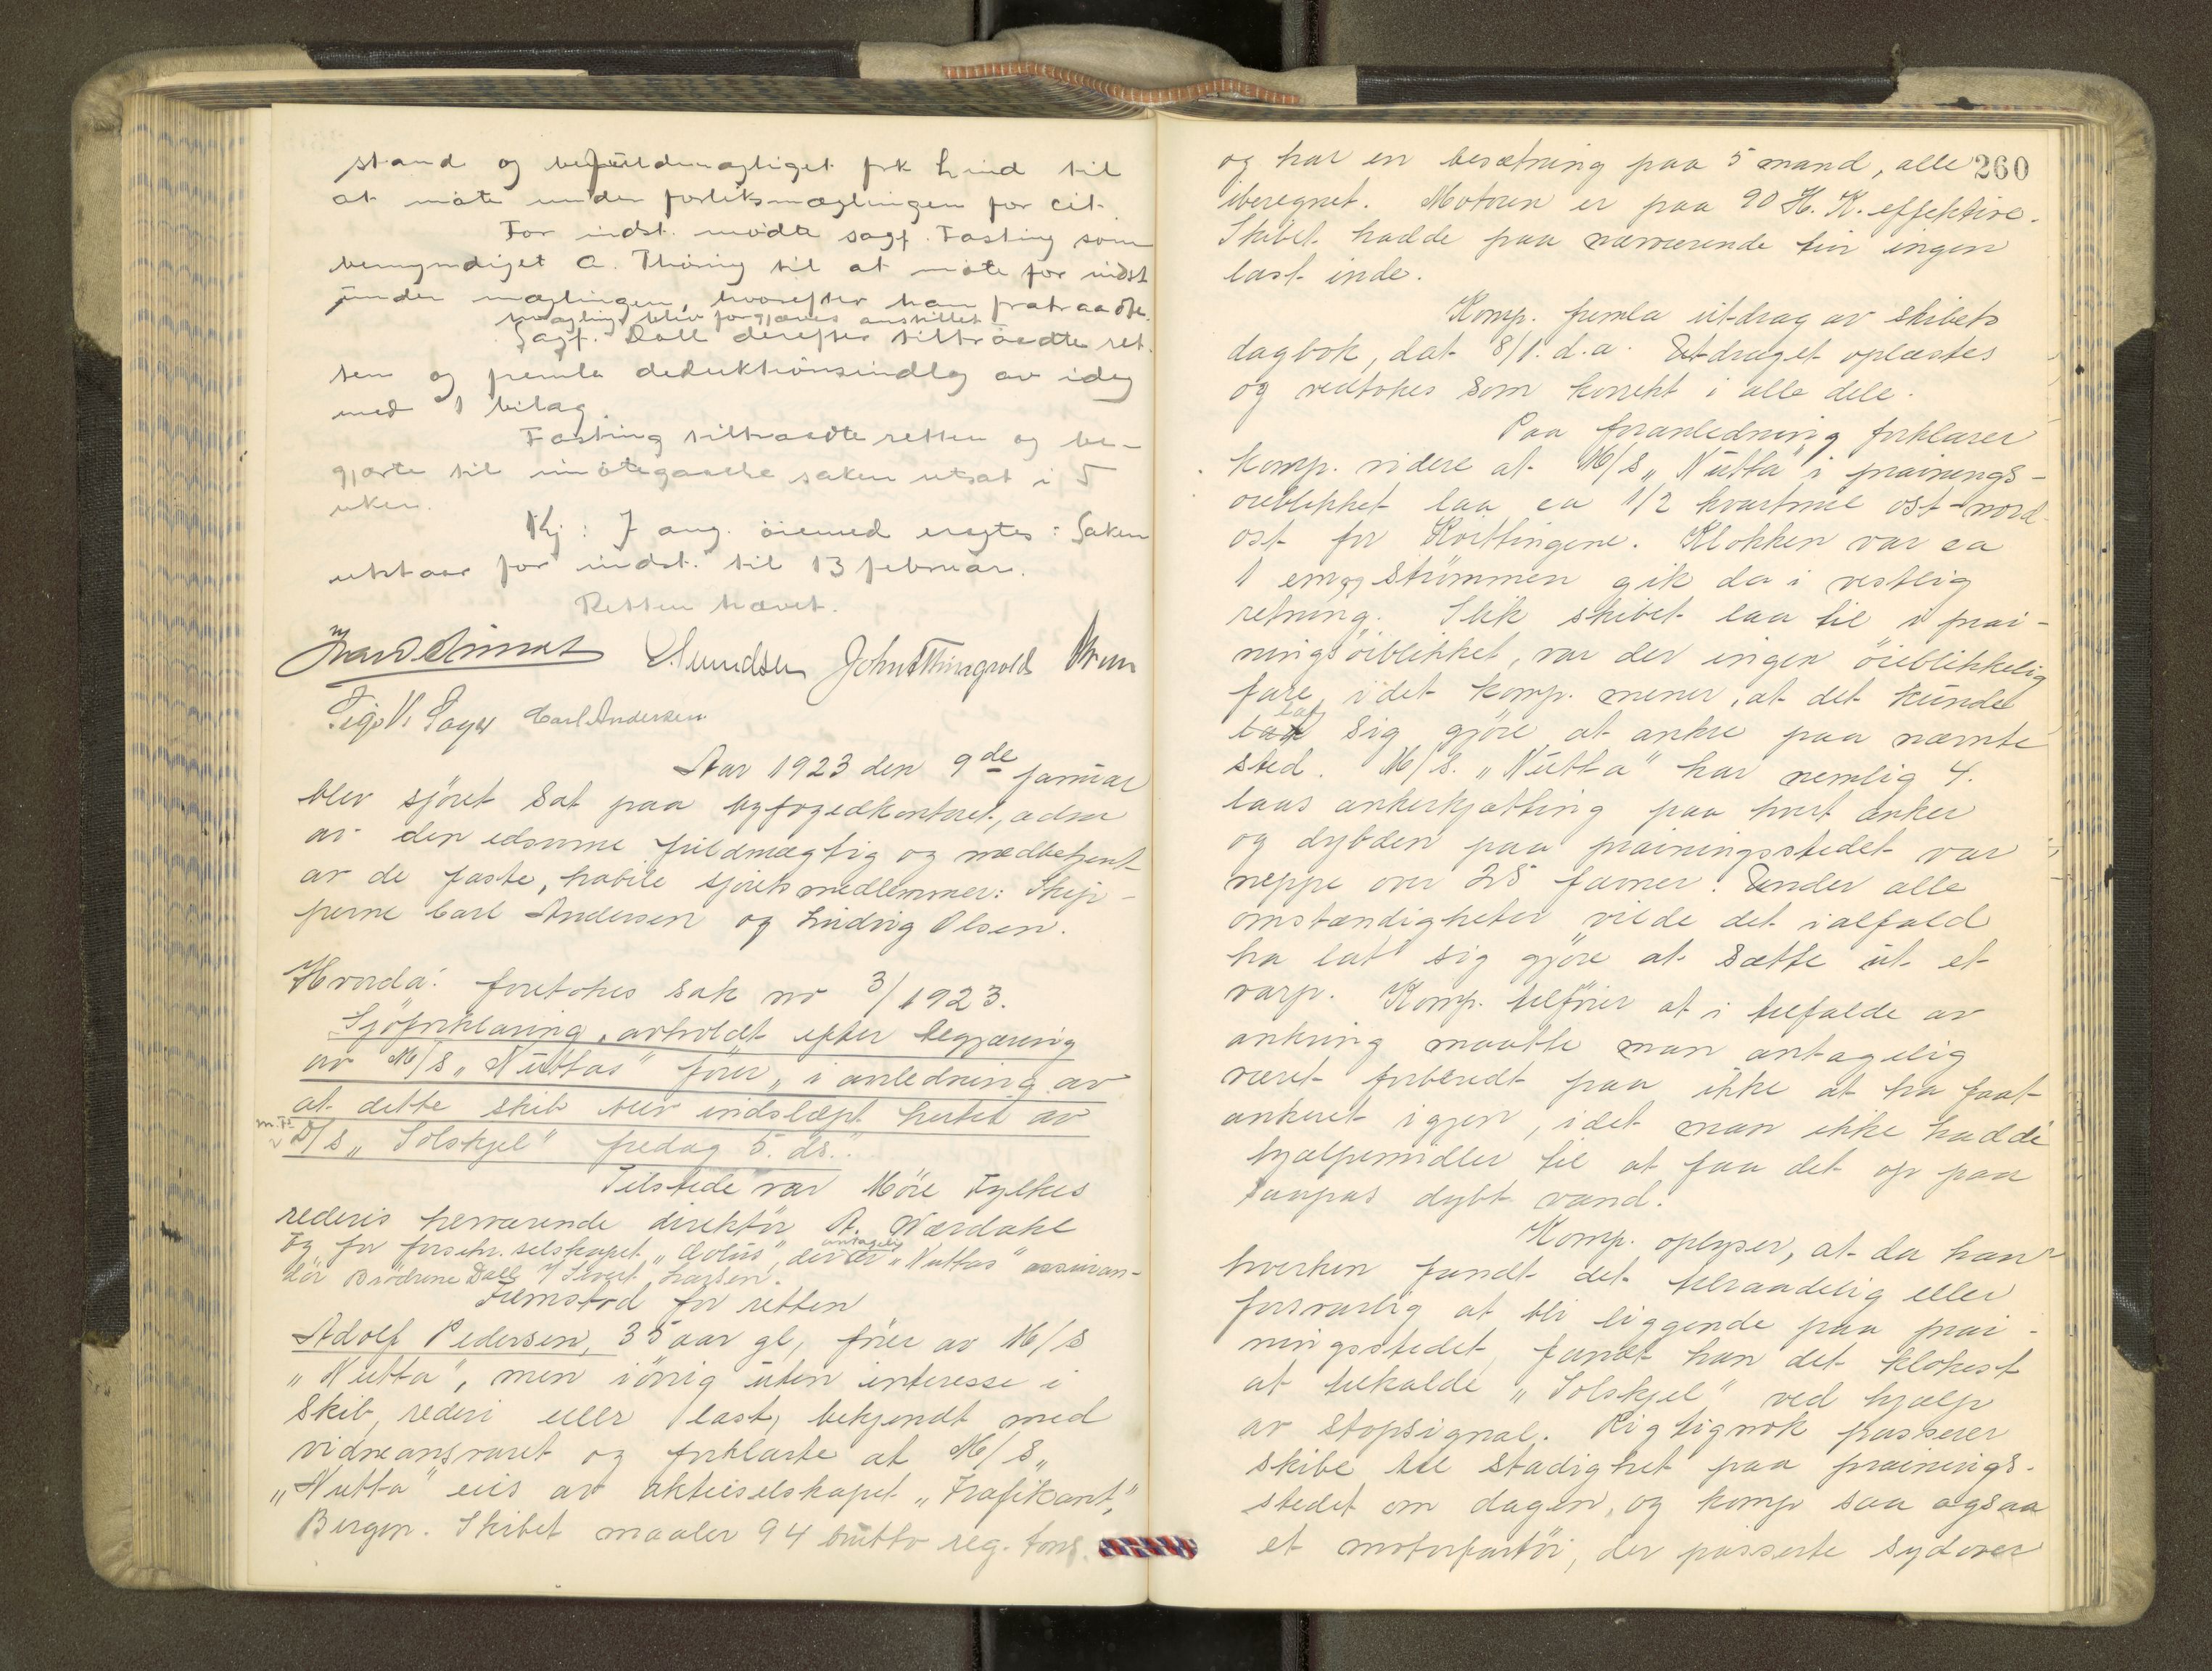 stand og befuldmægtiget frk Lind til
at møte under forliksmæglingen for cit.
For indst. mødte sagf. Fasting som
bemyndiget A. Thörig til at møte for indst
under mæglingen, hvorefter han fratraadte.
Mægling blev forgjæves anstillet
Sagf. Dall derefter tiltraadte ret.
ten og fremla deduktionsindlæg av idag
med 1 bilag.
Fasting tiltraadte retten og be-
gjærte til imøtegaaelse saken utsat i 5
uker.
Kj: I ang. øiemed eragtes: Saken
utstaar for indst. til 13 februar.
Retten hævet.
Carl Andersen
Aar 1923 den 9de januar
blev sjöret sat paa byfogedkontoret, adm
av den edsvorne fuldmægtig og medbetjent
av de faste, habile sjöretsmedlemmer: Skip-
perne Carl Andersen og Ludvig Olsen.
Hvorda: foretokes sak no 3/1923.
Sjöforklaring, avholdt efter begjæring
av M/S „Nuttas" förer „i anledning av
at dette skib blev indslæpt hertil av
D/S „Solskjel" fredag 5. ds."
Tilstede var Möre Fylkes
rederis herværende direktör A. Værdahl
og for forsikr.selskapet „Æolus", der antagelig er „Nuttas" assuran-
dör Brödrene Dall v/ Sivert Larsen.
Fremstod for retten
Adolf Pedersen, 35 aar gl, förer av M/S
„Nutta", men iövrig uten interesse i
skib, rederi eller last, bekjendt med
vidneansvaret og forklarte at M/S „
„Nutta" eies av aktieselskapet „Trafikant",
Bergen. Skibet maaler 94 brutto reg. tons
260
og har en besætning paa 5 mand, alle
iberegnet. Motoren er paa 90 H.K. effektive.
Skibet hadde paa nærværende tur ingen
last inde.
Komp. fremla utdrag av skibets
dagbok, dat 8/1. d.a. Utdraget oplæstes
og vedtokes som korrekt i alle dele.
Paa foranledning forklarer
komp. videre at M/S „Nutta" i prainings-
öieblikket laa ca 1/2 kvartmil ost-nord-
ost for Kvittingene. Klokken var ca
1 em og strömmen gik da i vestlig
retning. Slik skibet laa til i prai-
ningsöiblikket, var der ingen öieblikkelig
fare, idet komp. mener, at det kunde
lat sig gjöre at ankre paa nævnte
sted. M/S. „Nutta" har nemlig 4.
laas ankerkjætting paa hvert anker
og dybden paa prainingsstedet var
neppe over 25 favner. Under alle
omstændigheter vilde det ialfald
ha latt sig gjöre at sætte ut et
varp. Komp. tilföier at i tilfælde av
ankring maatte man antagelig
været forberedt paa ikke at ha faat
ankeret igjen, idet man ikke hadde
hjælpemidler til at faa det op paa
saapas dybt vand.
Komp. oplyser, at da han
hverken fandt det tilraadelig eller
forsvarlig at bli liggende paa prai-
ningsstedet fandt han det klokest
at tilkalde „Solskjel" ved hjælp
av stopsignal. Rigtignok passerer
skibe til stadighet paa prainings-
stedet om dagen, og komp saa ogsaa
et motorfartöi, der passerte sydover